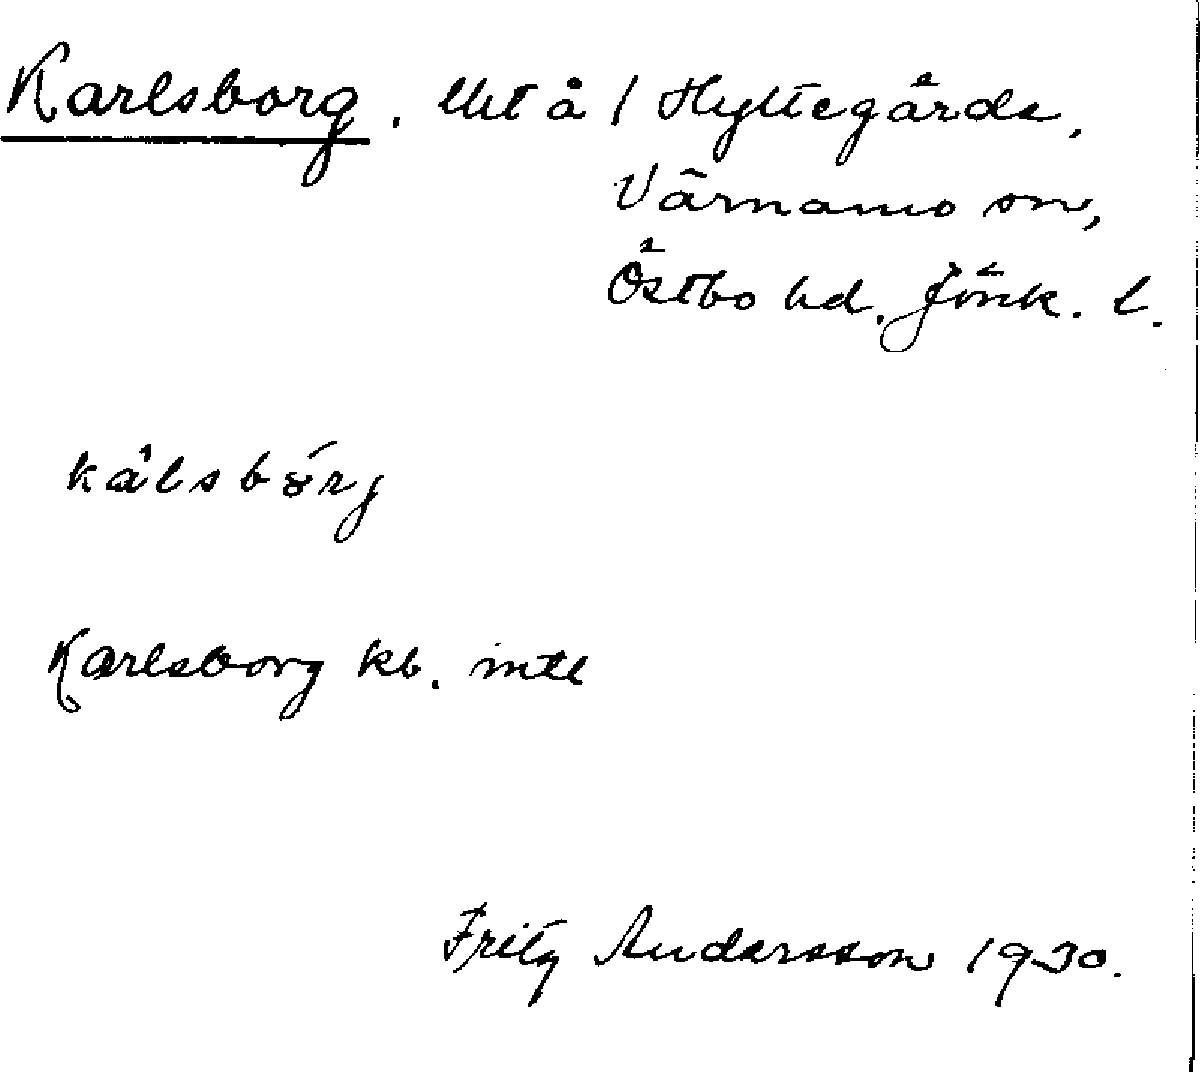 Karlsborg. Lht å 1 Hyltegårde,
Värnamo sn,
Östbo hd. Jönk. l.
kálsbórj
Karlsborg kb. intl
Fritz Andersson 1930.